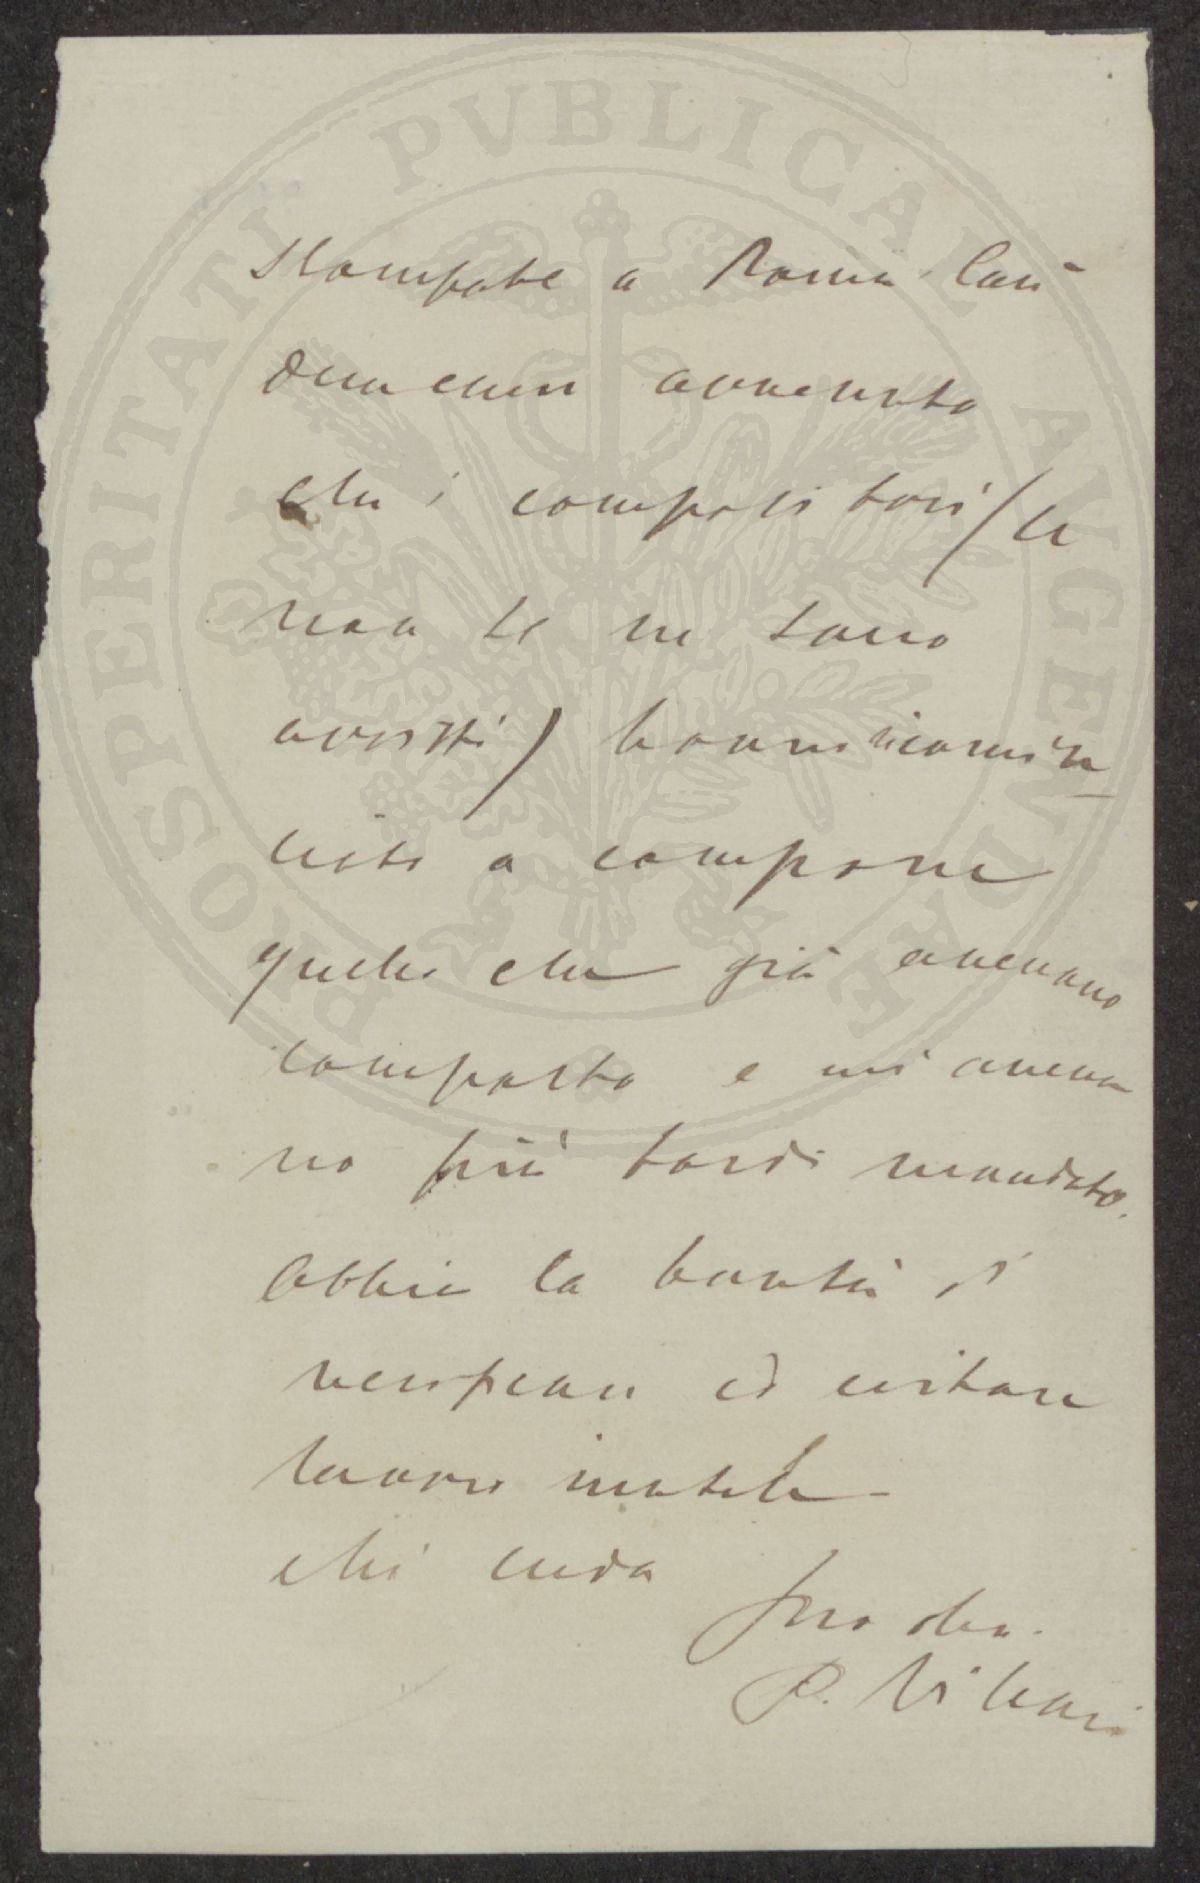 PROSPERITATI PVBLICAE AVGENDAE
stampate a Roma. Così
dev'esser avvenuto
che i compositori (se
non se ne sono
avvisti) hanno ricomin
ciato a comporre
quello che già avevano
composto e mi aveva
no più tardi mandato.
Abbia la bontà di
verificare ed evitare
lavoro inutile
Mi creda
Suo dev.
P. Villari